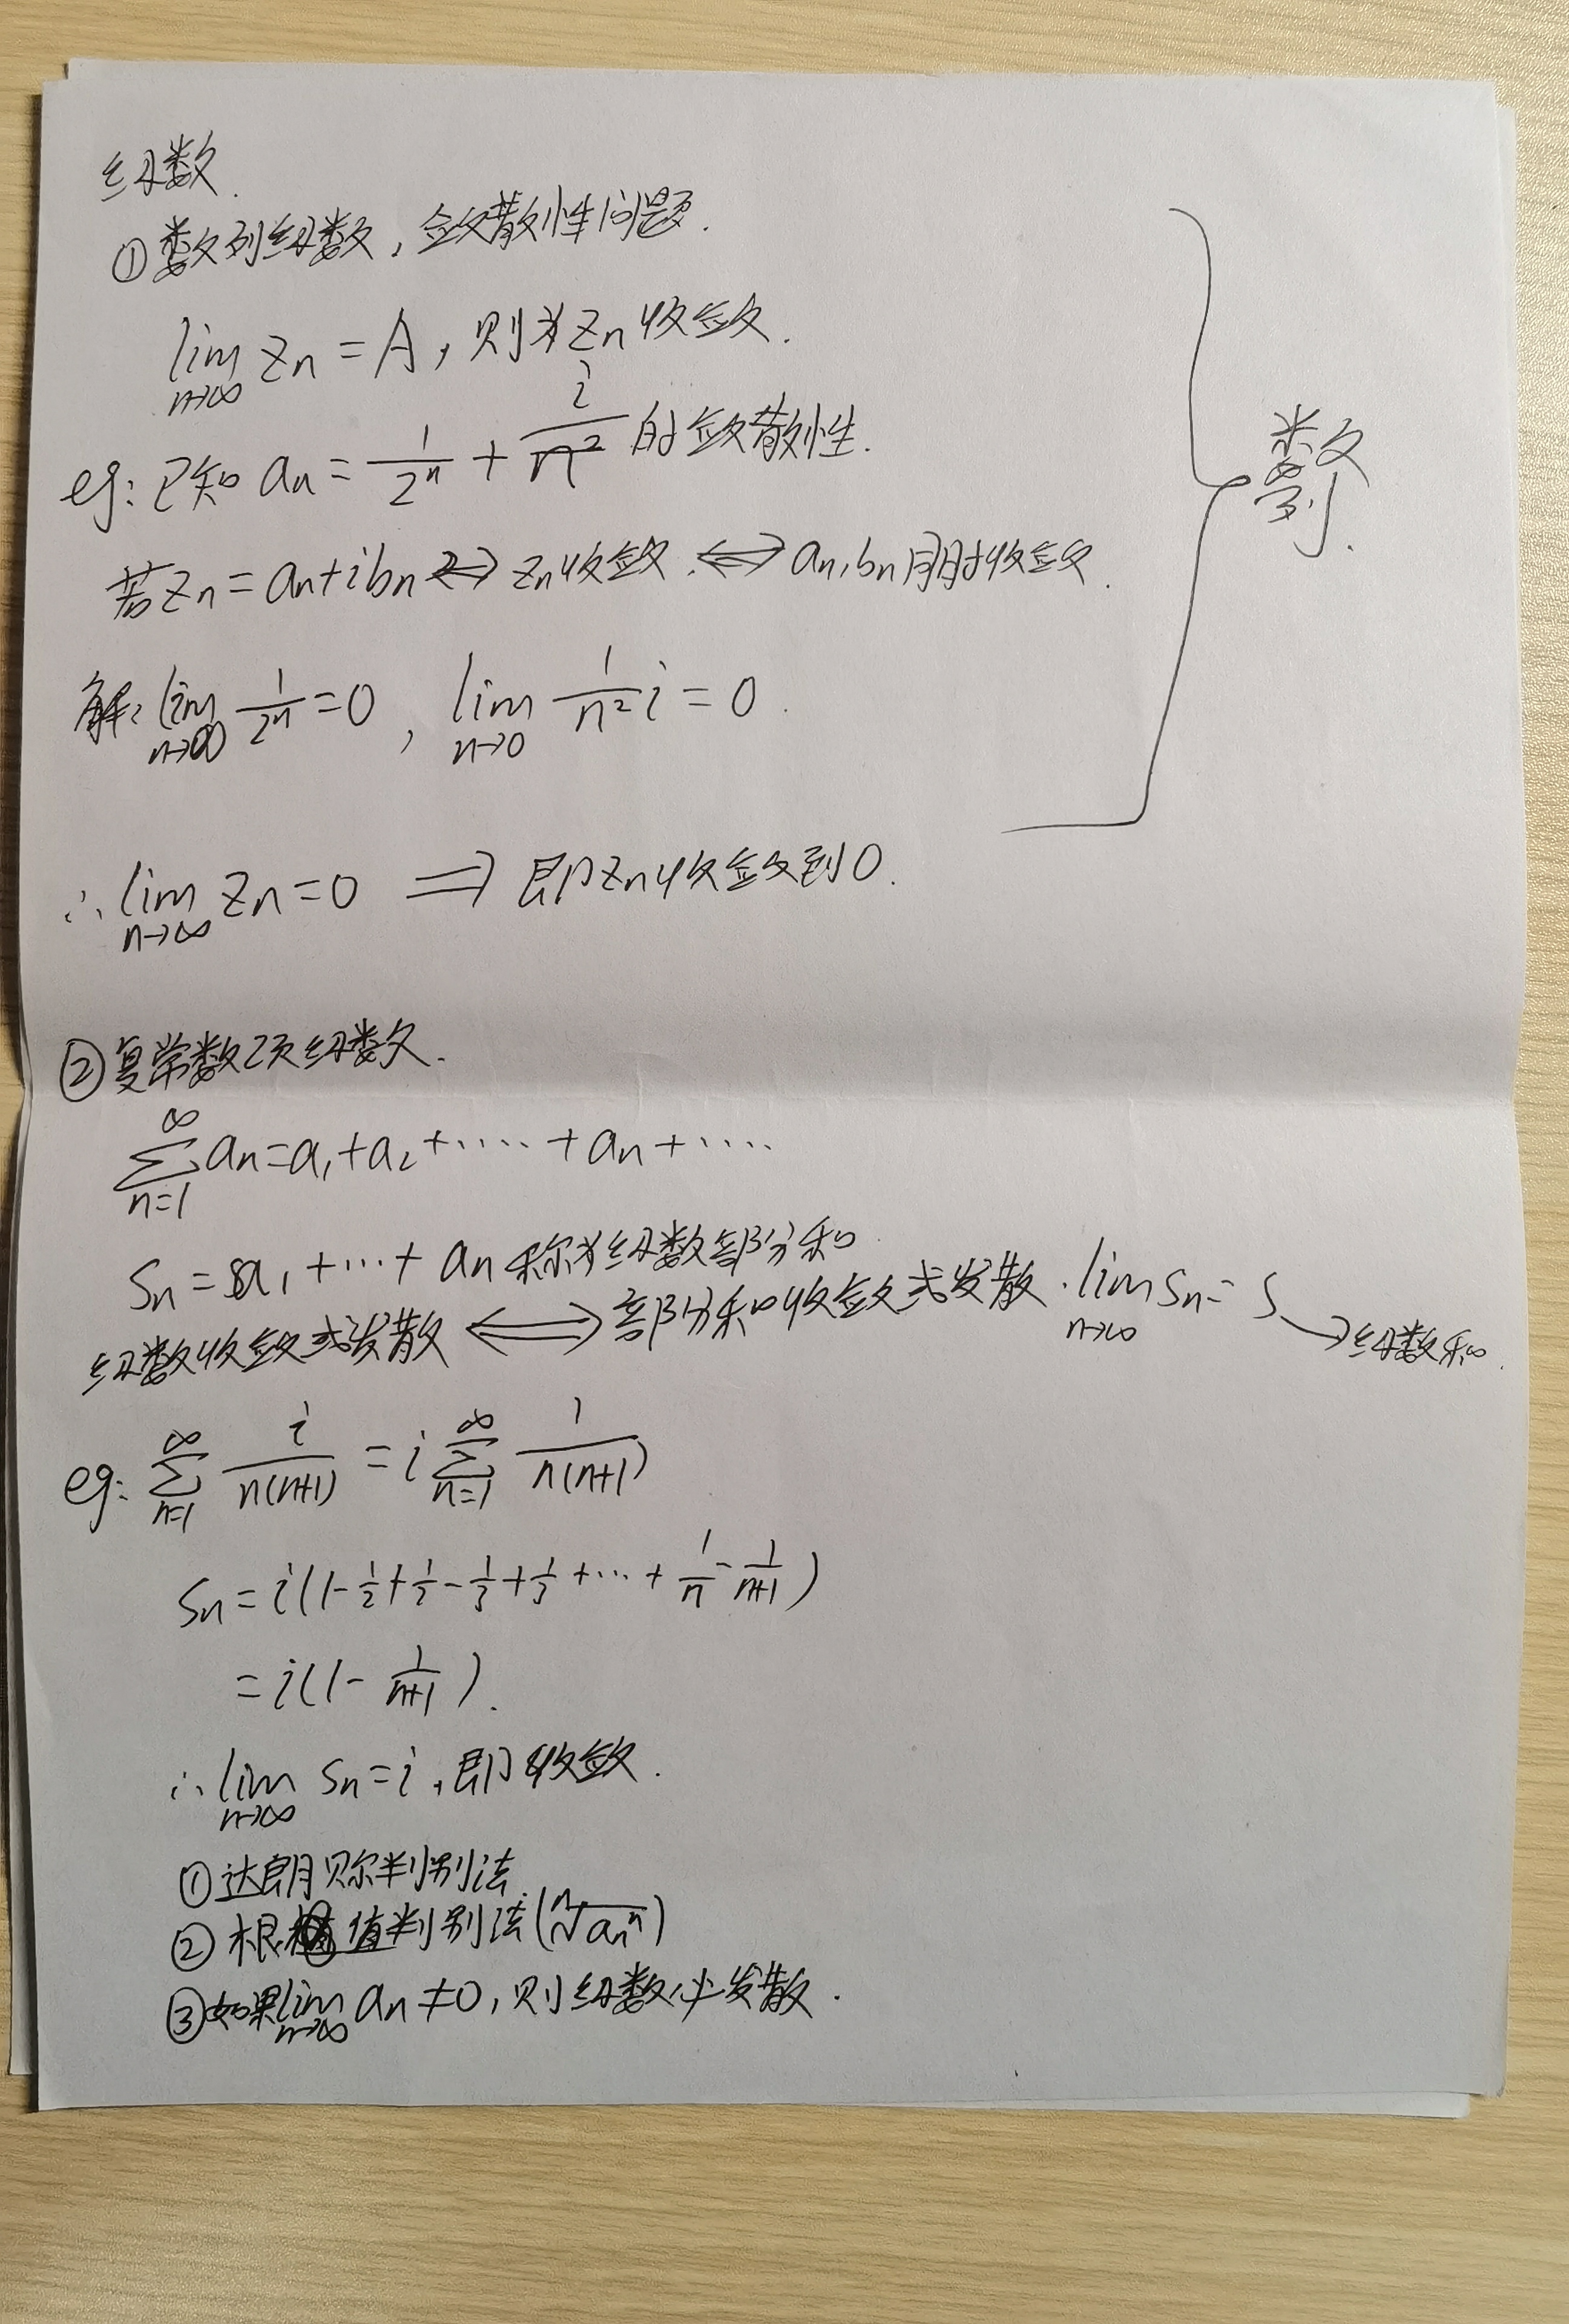 级数.
①数列级数,敛散性问题.
lim n→∞ zn = A,则为zn收敛.
eg:已知 an = 1/2ⁿ + i/n² 的敛散性.
数列.
若zn = an+ibn ⇔ zn收敛.⇔ an,bn同时收敛.
解: lim n→∞ 1/2ⁿ = 0 , lim n→0 1/n² i = 0.
∴ lim n→∞ zn = 0 ⇒ 即zn收敛到0.
②复常数项级数.
∞ ∑ n=1 an = a₁+a₂+·····+an+····
Sn = a₁+···+an 称为级数部分和
级数收敛或发散 ⇔ 部分和收敛或发散. lim n→∞ Sn = S →级数和.
eg: ∞ ∑ n=1 i/n(n+1) = i ∞ ∑ n=1 1/n(n+1)
Sn = i(1-1/2+1/2-1/3+1/3+···+1/n-1/n+1)
= i(1-1/n+1).
∴ lim n→∞ Sn = i,即收敛.
①达朗贝尔判别法.
②根值判别法(ⁿ√anⁿ)
③如果lim n→∞ an ≠ 0,则级数必发散.